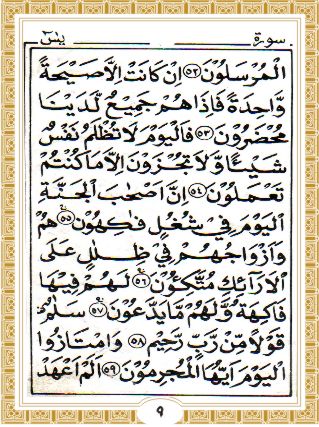 سورة يٰسٓ
الْمُرْسَلُوْنَ ﴿۵۲﴾ اِنْ كَانَتْ اِلَّا صَيْحَةً
وَّاحِدَةً فَاِذَا هُمْ جَمِيْعٌ لَّدَيْنَا
مُحْضَرُوْنَ ﴿۵۳﴾ فَالْيَوْمَ لَا تُظْلَمُ نَفْسٌ
شَيْـًٔا وَّلَا تُجْزَوْنَ اِلَّا مَا كُنْتُمْ
تَعْمَلُوْنَ ﴿۵۴﴾ اِنَّ اَصْحٰبَ الْجَنَّةِ
الْيَوْمَ فِيْ شُغُلٍ فٰكِهُوْنَ ﴿۵۵﴾ هُمْ
وَاَزْوَاجُهُمْ فِيْ ظِلٰلٍ عَلَى
الْاَرَآئِكِ مُتَّكِـُٔوْنَ ﴿۵۶﴾ لَهُمْ فِيْهَا
فَاكِهَةٌ وَّلَهُمْ مَّا يَدَّعُوْنَ ﴿۵۷﴾ سَلٰمٌ
قَوْلًا مِّنْ رَّبٍّ رَّحِيْمٍ ﴿۵۸﴾ وَامْتَازُوا
الْيَوْمَ اَيُّهَا الْمُجْرِمُوْنَ ﴿۵۹﴾ اَلَمْ اَعْهَدْ
۹